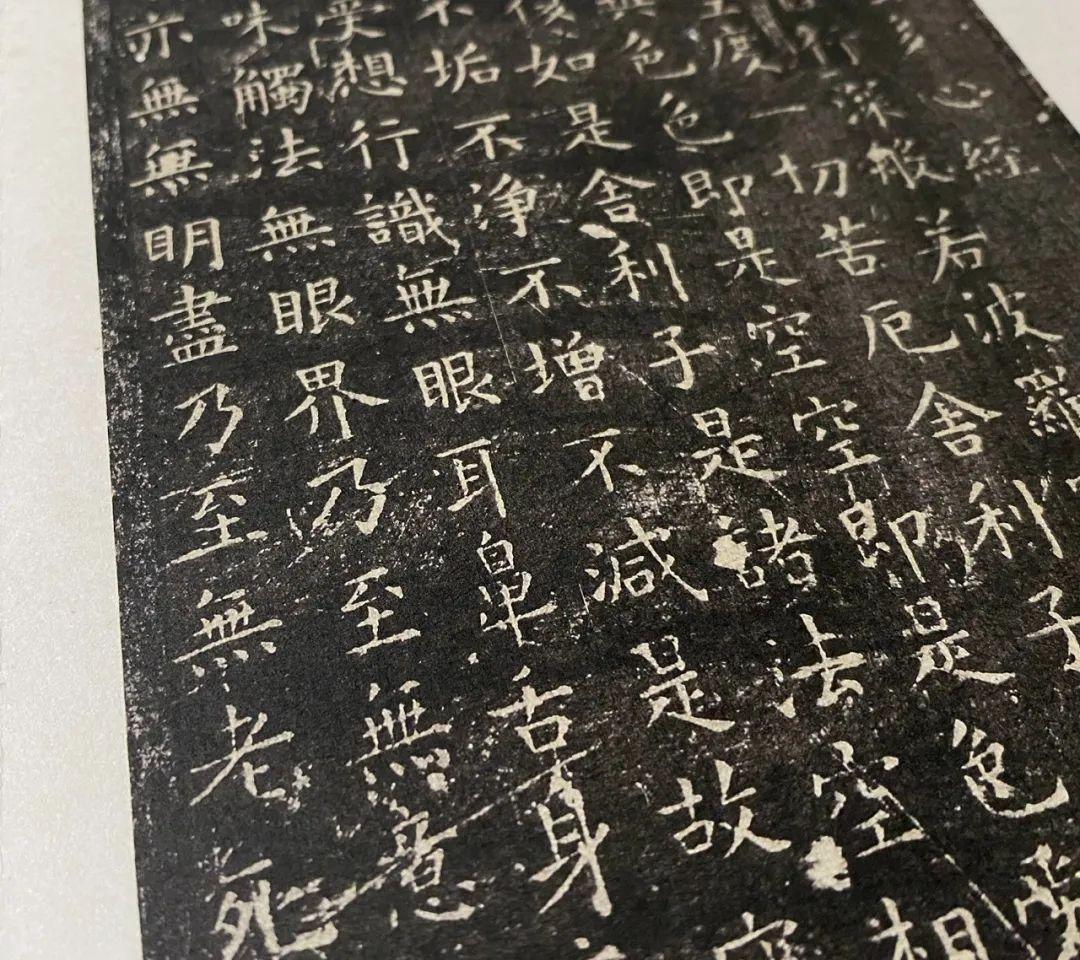 心經
行深般若波羅
度一切苦厄舍利子
異色色即是空空即是色受
後如是舍利子是諸法空相
不垢不淨不增不減是故空
受想行識無眼耳鼻舌身
味觸法無眼界乃至無意
亦無無明盡乃至無老死